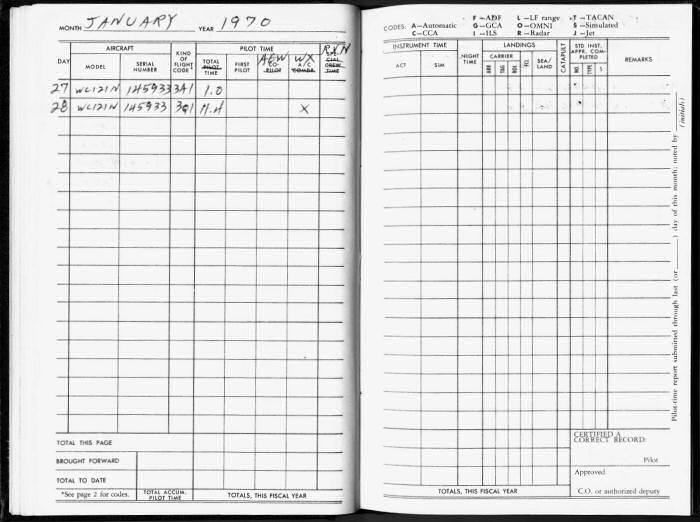 MONTH JANUARY YEAR 1970
AIRCRAFT PILOT TIME
DAY MODEL SERIAL NUMBER KIND OF FLIGHT CODE* TOTAL PILOT TIME FIRST PILOT AEW CO-PILOT WX A/C COMDR. SPE-CIAL CREW TIME
27 WC121N 145933 3A1 1.0
28 WC121N 145933 3Q1 11.4 X
TOTAL THIS PAGE
BROUGHT FORWARD
TOTAL TO DATE
*See page 2 for codes. TOTAL ACCUM. PILOT TIME TOTALS, THIS FISCAL YEAR
CODES: A—Automatic F—ADF L—LF range T—TACAN
C—CCA G—GCA O—OMNI S—Simulated
I—ILS R—Radar J—Jet
INSTRUMENT TIME NIGHT TIME LANDINGS CATAPULT STD INST. APPR. COM-PLETED REMARKS
ACT SIM CARRIER SEA/LAND
ARR T&G BOL FCL NO. TYPE S
Pilot-time report submitted through last (or ) day of this month; noted by (initials)
CERTIFIED A CORRECT RECORD:
Pilot
Approved
C.O. or authorized deputy
TOTALS, THIS FISCAL YEAR